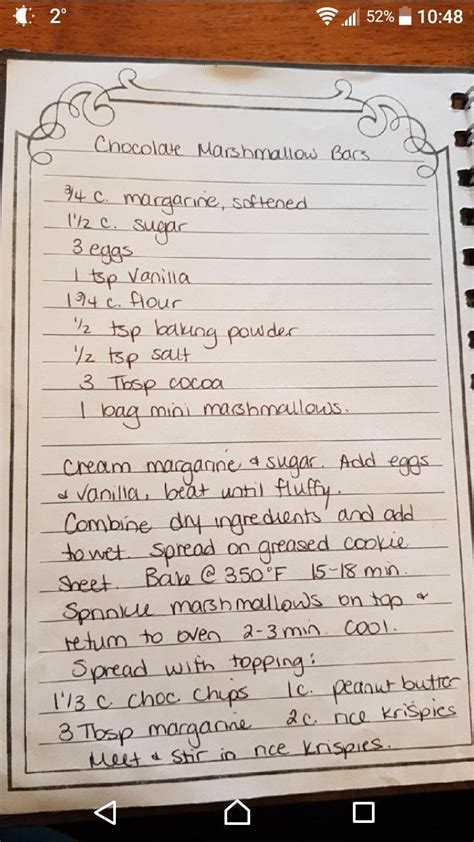 2° 52% 10:48
Chocolate Marshmallow Bars
3/4 c. margarine, softened
1 1/2 c. sugar
3 eggs
1 tsp vanilla
1 3/4 c. flour
1/2 tsp baking powder
1/2 tsp salt
3 Tbsp cocoa
1 bag mini marshmallows.
Cream margarine & sugar. Add eggs
& vanilla, beat until fluffy.
Combine dry ingredients and add
to wet. Spread on greased cookie
sheet. Bake @ 350°F 15-18 min.
Sprinkle marshmallows on top &
return to oven 2-3 min. Cool.
Spread with topping:
1 1/3 c. choc. chips 1c. peanut butter
3 Tbsp margarine 2c. rice krispies
Melt & stir in rice krispies.